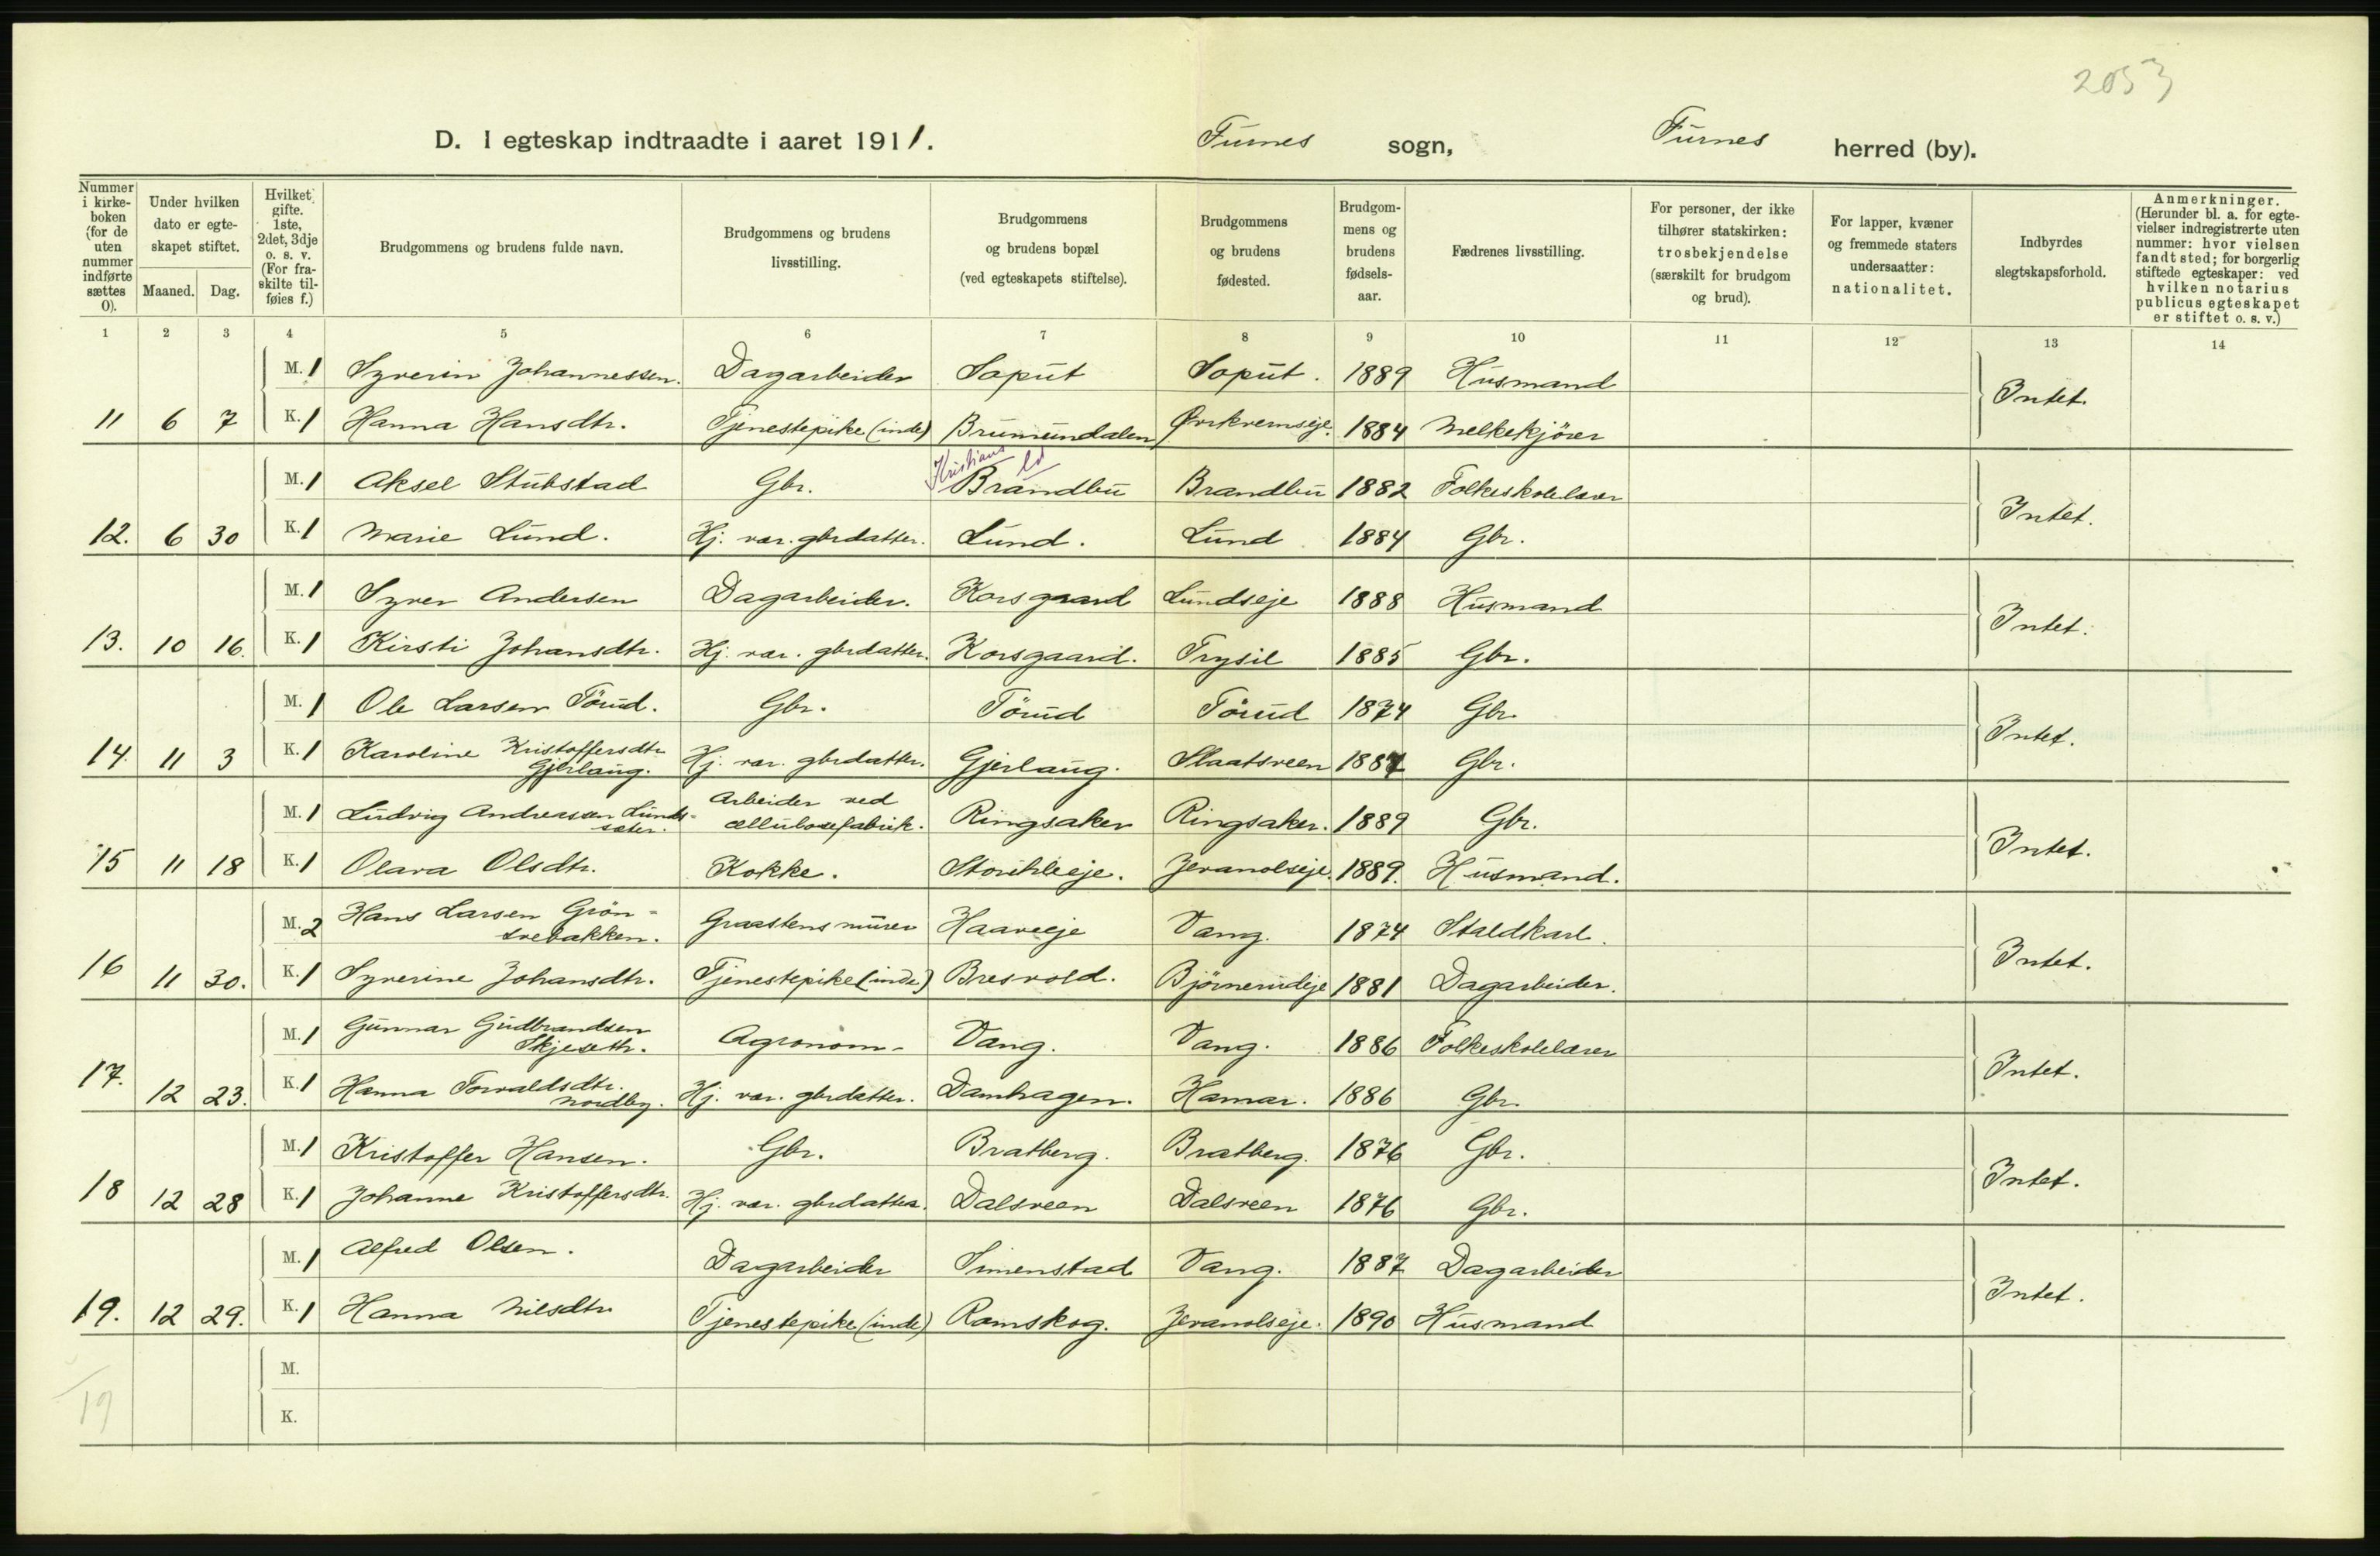 2053
D. I egteskap indtraadte i aaret 1911. Furnes sogn, Furnes herred (by).
Nummer i kirkeboken (for de uten nummer indførte sættes 0).
Under hvilken dato er egteskapet stiftet.
Maaned. Dag.
Hvilket gifte. 1ste, 2det, 3dje o. s. v. (For fraskilte tilføies f.)
Brudgommens og brudens fulde navn.
Brudgommens og brudens livsstilling.
Brudgommens og brudens bopæl (ved egteskapets stiftelse).
Brudgommens og brudens fødested.
Brudgommens og brudens fødselsaar.
Fædrenes livsstilling.
For personer, der ikke tilhører statskirken: trosbekjendelse (særskilt for brudgom og brud).
For lapper, kvæner og fremmede staters undersaatter: nationalitet.
Indbyrdes slegtskapsforhold.
Anmerkninger. (Herunder bl. a. for egtevielser indregistrerte uten nummer: hvor vielsen fandt sted; for borgerlig stiftede egteskaper: ved hvilken notarius publicus egteskapet er stiftet o. s. v.)
1 2 3 4 5 6 7 8 9 10 11 12 13 14
M. 1 Syverin Johannessen. Dagarbeider Soput Soput. 1889 Husmand
11 6 7 K. 1 Hanna Hansdtr. Tjenestepike (inde) Brumundalen Ørkvernseje. 1884 Melkekjörer Intet.
Kristians
M. 1 Aksel Stubstad Gbr. Brandbu Brandbu 1882 Folkeskolelærer
12. 6 30 K. 1 Marie Lund. Hj. vær. gbrdatter. Lund. Lund 1884 Gbr. Intet.
M. 1 Syver Andersen Dagarbeider. Korsgaard Lundseje 1888 Husmand
13. 10 16. K. 1 Kirsti Johansdtr. Hj. vær. gbrdatter. Korsgaard. Trysil 1885 Gbr. Intet.
M. 1 Ole Larsen Törud. Gbr. Törud Törud 1874 Gbr.
14. 11 3 K. 1 Karoline Kristoffersdtr. Gjerlaug. Hj. vær. gbrdatter. Gjerlaug. Slaatsveen 1887 Gbr. Intet.
M. 1 Ludvig Andreassen Lundssæter. Arbeider ved cellulosefabrik. Ringsaker Ringsaker. 1889 Gbr.
15 11 18 K. 1 Olava Olsdtr. Kokke. Jevanolseje. 1889. Husmand. Intet.
M. 2 Hans Larsen Gröntvebakken. Graastensmurer Haaveeje Vang. 1874 Staldkarl.
16 11 30. K. 1 Syverine Johansdtr. Tjenestepike (inde) Bresvold. Björnerudeje 1881 Dagarbeider. Intet.
M. 1 Gunnar Gudbrandsen Skjeseth. Agronom. Vang. Vang. 1886 Folkeskolelærer
17. 12 23. K. 1 Hanna Torvaldsdtr. Nordby. Hj. vær. gbrdatter. Damhagen. Hamar. 1886 Gbr. Intet.
M. 1 Kristoffer Hansen. Gbr. Bratberg. Bratberg. 1876 Gbr.
18 12 28 K. 1 Johanne Kristoffersdtr. Hj. vær. gbrdatter. Dalsveen Dalsveen 1876 Gbr. Intet.
M. 1 Alfred Olsen. Dagarbeider Simenstad Vang. 1887 Dagarbeider
19. 12 29. K. 1 Hanna Nilsdtr. Tjenestepike (inde) Ramskog. Jevanolseje. 1890 Husmand Intet.
M.
19
K.